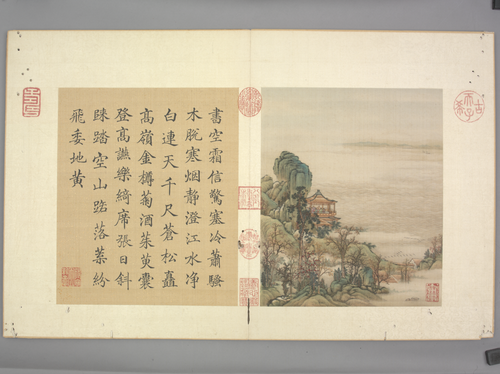 書空霜信驚塞冷蕭騷
木脫寒烟靜澄江水净
白連天千尺蒼松矗
高嶺金樽菊酒茱萸囊
登高讌樂綺席張日斜
踏空山路落葉紛
飛委地黃
古稀天子